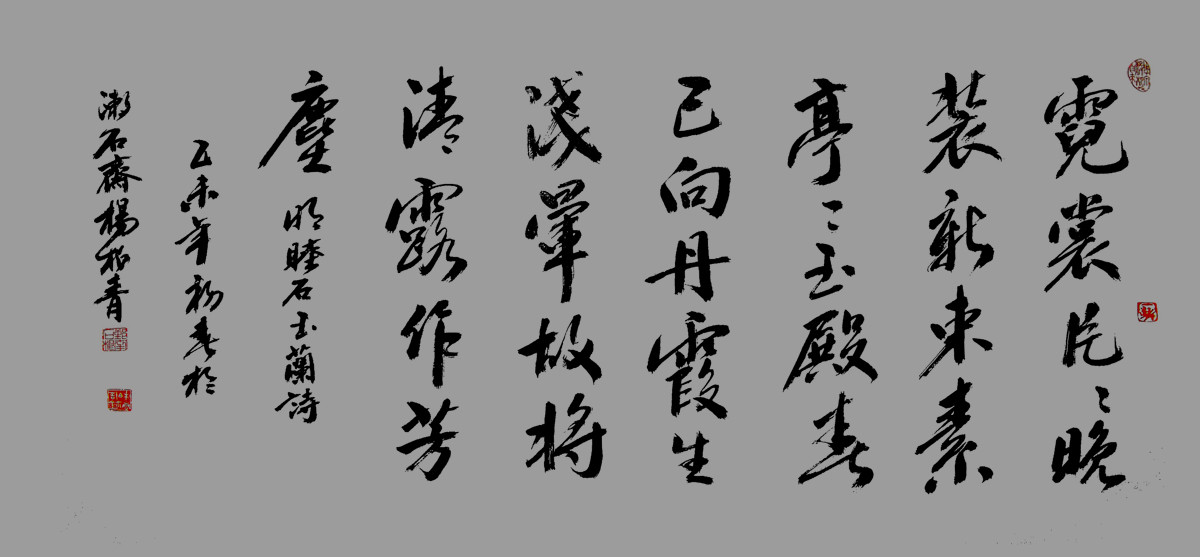 霓裳片〻晚
装新束素
亭〻玉殿春
已向丹霞生
淺暈故将
清露作芳
塵 明睦石玉蘭詩
乙未年初春於
漱石齋楊青